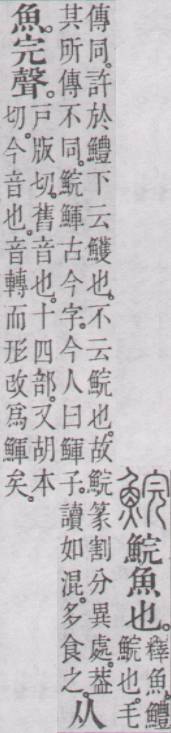 鯇 鯇魚也。
釋魚。鱧
鯇也。毛
傳同。許於鱧下云鱯也。不云鯇也。故鯇篆割分異處。葢
其所傳不同。鯇鯶古今字。今人曰鯶子。讀如混。多食之。
从
魚。完聲。
戸版切。舊音也。十四部。又胡本
切。今音也。音轉而形改爲鯶矣。